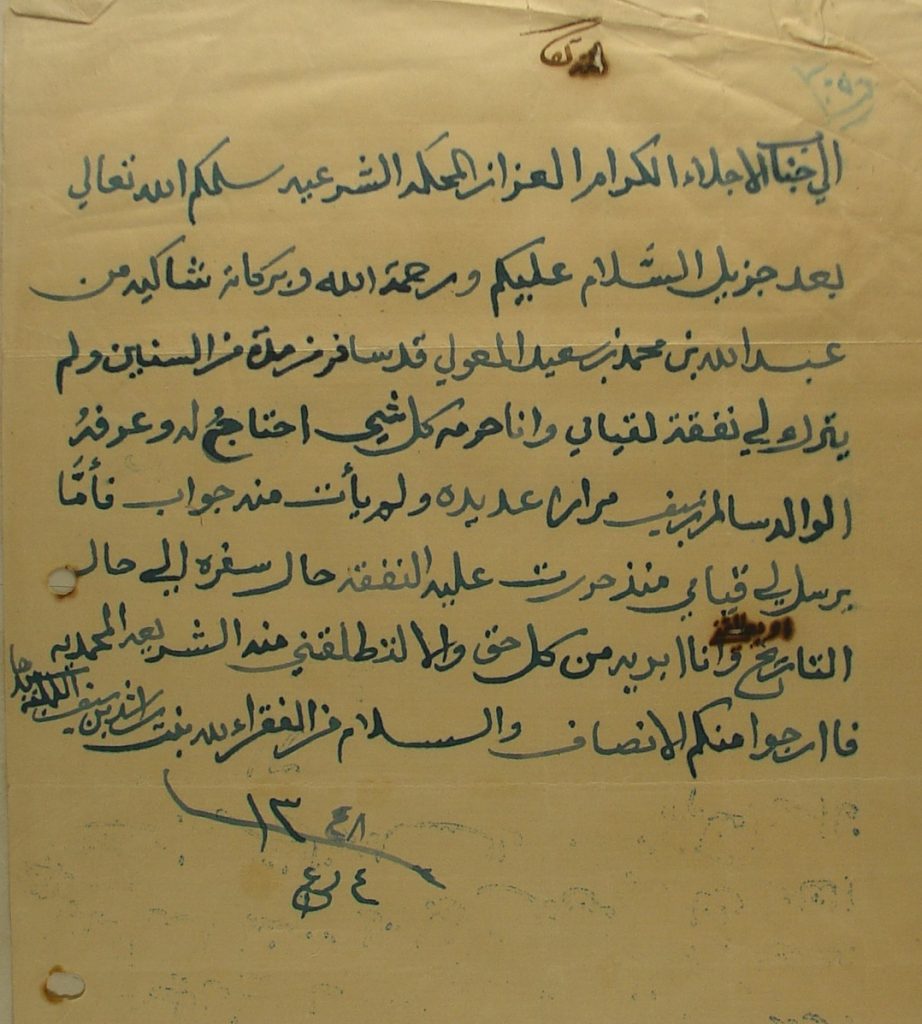 الى جناب الاجلاء الكرام العزاز المحكمه الشرعيه سلمكم الله تعالي
بعد جزيل السَّلام عليكم ورحمة الله وبركاته شاكيه من
عبدالله بن محمد بن سعيد المعولي قد سافر من مدة من السنين ولم
يترك لي نفقة لقيامي وانا حرمه كل شيى احتاج له وعرفهُ
الوالد سالم بن سيف مرارا عديده ولم يأت منه جواب فأمَّا
يرسل لي قيامي منذ حررت عليه النفقة حال سفره الي حال
التاريخ وانا اريد من كل حق والا لتطلقني منه الشريعه المحمديه
فاارجوا منكم الانصاف والسلام من الفقراء لله بنت راشد بن سيف
١٣٤٨
٤ ر ٤